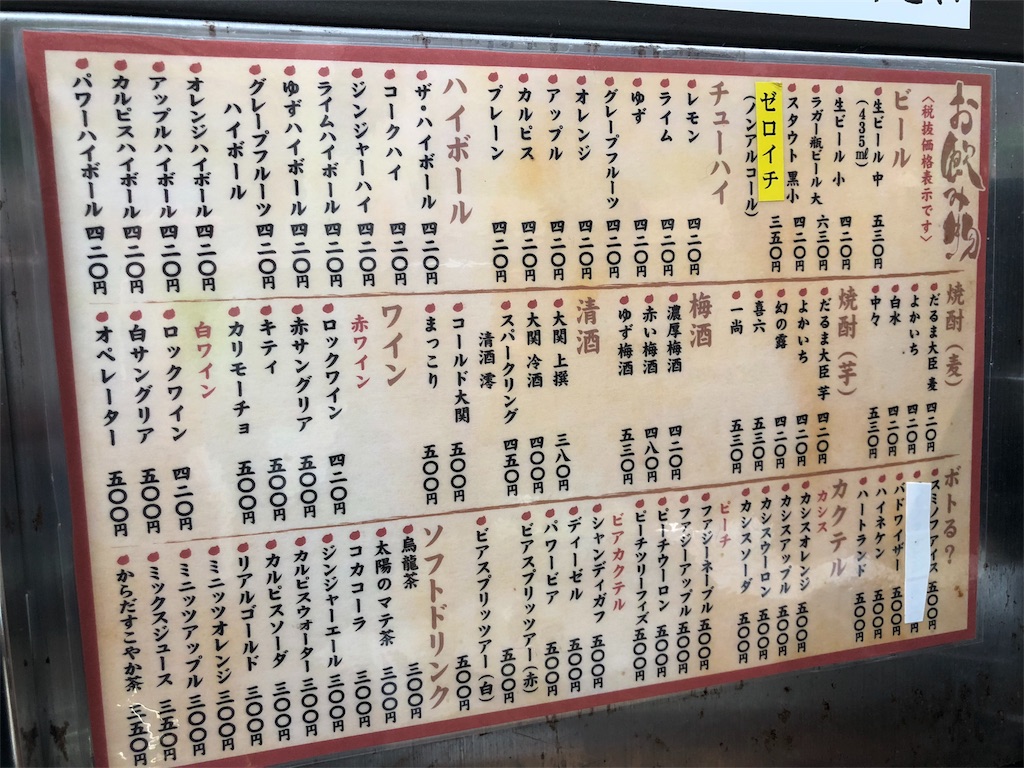 お飲み物
〈税抜価格表示です〉
ビール
生ビール 中 五三〇円
(435㎖)
生ビール 小 四二〇円
ラガー瓶ビール 大 六三〇円
スタウト 黒小 四二〇円
ゼロイチ 三五〇円
(ノンアルコール)
チューハイ
レモン 四二〇円
ライム 四二〇円
ゆず 四二〇円
グレープフルーツ 四二〇円
オレンジ 四二〇円
アップル 四二〇円
カルピス 四二〇円
プレーン 四二〇円
ハイボール
ザ・ハイボール 四二〇円
コークハイ 四二〇円
ジンジャーハイ 四二〇円
ライムハイボール 四二〇円
ゆずハイボール 四二〇円
グレープフルーツ
ハイボール 四二〇円
オレンジハイボール 四二〇円
アップルハイボール 四二〇円
カルピスハイボール 四二〇円
パワーハイボール 四二〇円
焼酎(麦)
だるま大臣 麦 四二〇円
よかいち 四二〇円
白水 四二〇円
中々 五三〇円
焼酎(芋)
だるま大臣 芋 四二〇円
よかいち 四二〇円
幻の露 四二〇円
喜六 五三〇円
一尚 五三〇円
梅酒
濃厚梅酒 四二〇円
赤い梅酒 四八〇円
ゆず梅酒 五三〇円
清酒
大関 上撰 三八〇円
大関 冷酒 四〇〇〇円
スパークリング
清酒 澪 四五〇円
コールド大関 五〇〇円
まっこり 五〇〇円
ワイン
赤ワイン
ロックワイン 四二〇円
赤サングリア 五〇〇円
キティ 五〇〇円
カリモーチョ 五〇〇円
白ワイン
ロックワイン 四二〇円
白サングリア 五〇〇円
オペレーター 五〇〇円
ボトる?
スミノフアイス 五〇〇円
バドワイザー 五〇〇円
ハイネケン 五〇〇円
ハートランド 五〇〇円
カクテル
カシス
カシスオレンジ 五〇〇円
カシスアップル 五〇〇円
カシスウーロン 五〇〇円
カシスソーダ 五〇〇円
ピーチ
ファジーネーブル 五〇〇円
ファジーアップル 五〇〇円
ピーチウーロン 五〇〇円
ピーチツリーフィズ 五〇〇円
ビアカクテル
シャンディガフ 五〇〇円
ディーゼル 五〇〇円
パワービア 五〇〇円
ビアスプリッツアー(赤) 五〇〇円
ビアスプリッツアー(白) 五〇〇円
ソフトドリンク
烏龍茶 三〇〇円
太陽のマテ茶 三〇〇円
コカコーラ 三〇〇円
ジンジャーエール 三〇〇円
カルピスウォーター 三〇〇円
カルピスソーダ 三〇〇円
リアルゴールド 三〇〇円
ミニッツオレンジ 三〇〇円
ミニッツアップル 三〇〇円
ミックスジュース 三五〇円
からだすこやか茶 三五〇円